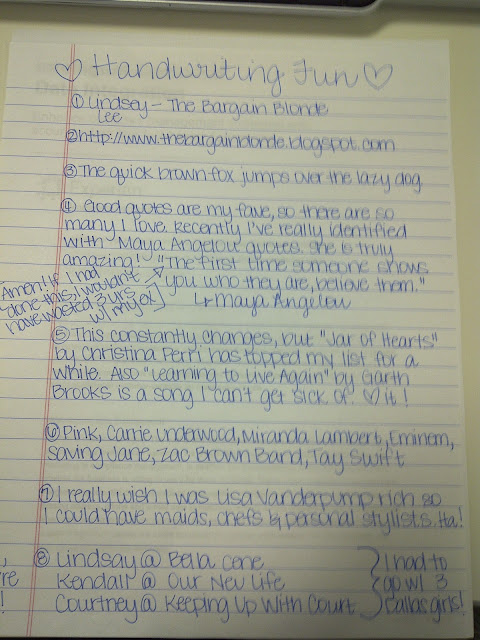 ♡ Handwriting Fun ♡
① Lindsey - The Bargain Blonde
Lee
② http://www.thebargainblonde.blogspot.com
③ The quick brown fox jumps over the lazy dog
④ Good quotes are my fave, so there are so
many I love. Recently I've really identified
with Maya Angelou quotes. She is truly
amazing! "The first time someone shows
you who they are, believe them."
↳ Maya Angelou
Amen! If I had
done this, I wouldn't
have wasted 3 yrs
w/ my ex
⑤ This constantly changes, but "Jar of Hearts"
by Christina Perri has topped my list for a
while. Also "Learning to Live Again" by Garth
Brooks is a song I can't get sick of. ♡ it!
⑥ Pink, Carrie Underwood, Miranda Lambert, Eminem,
Saving Jane, Zac Brown Band, Tay Swift
⑦ I really wish I was Lisa Vanderpump rich so
I could have maids, chefs & personal stylists. Ha!
⑧ Lindsay @ Bella cone
Kendall @ Our New Life
Courtney @ Keeping Up With Court
I had to
go w/ 3
Dallas girls!